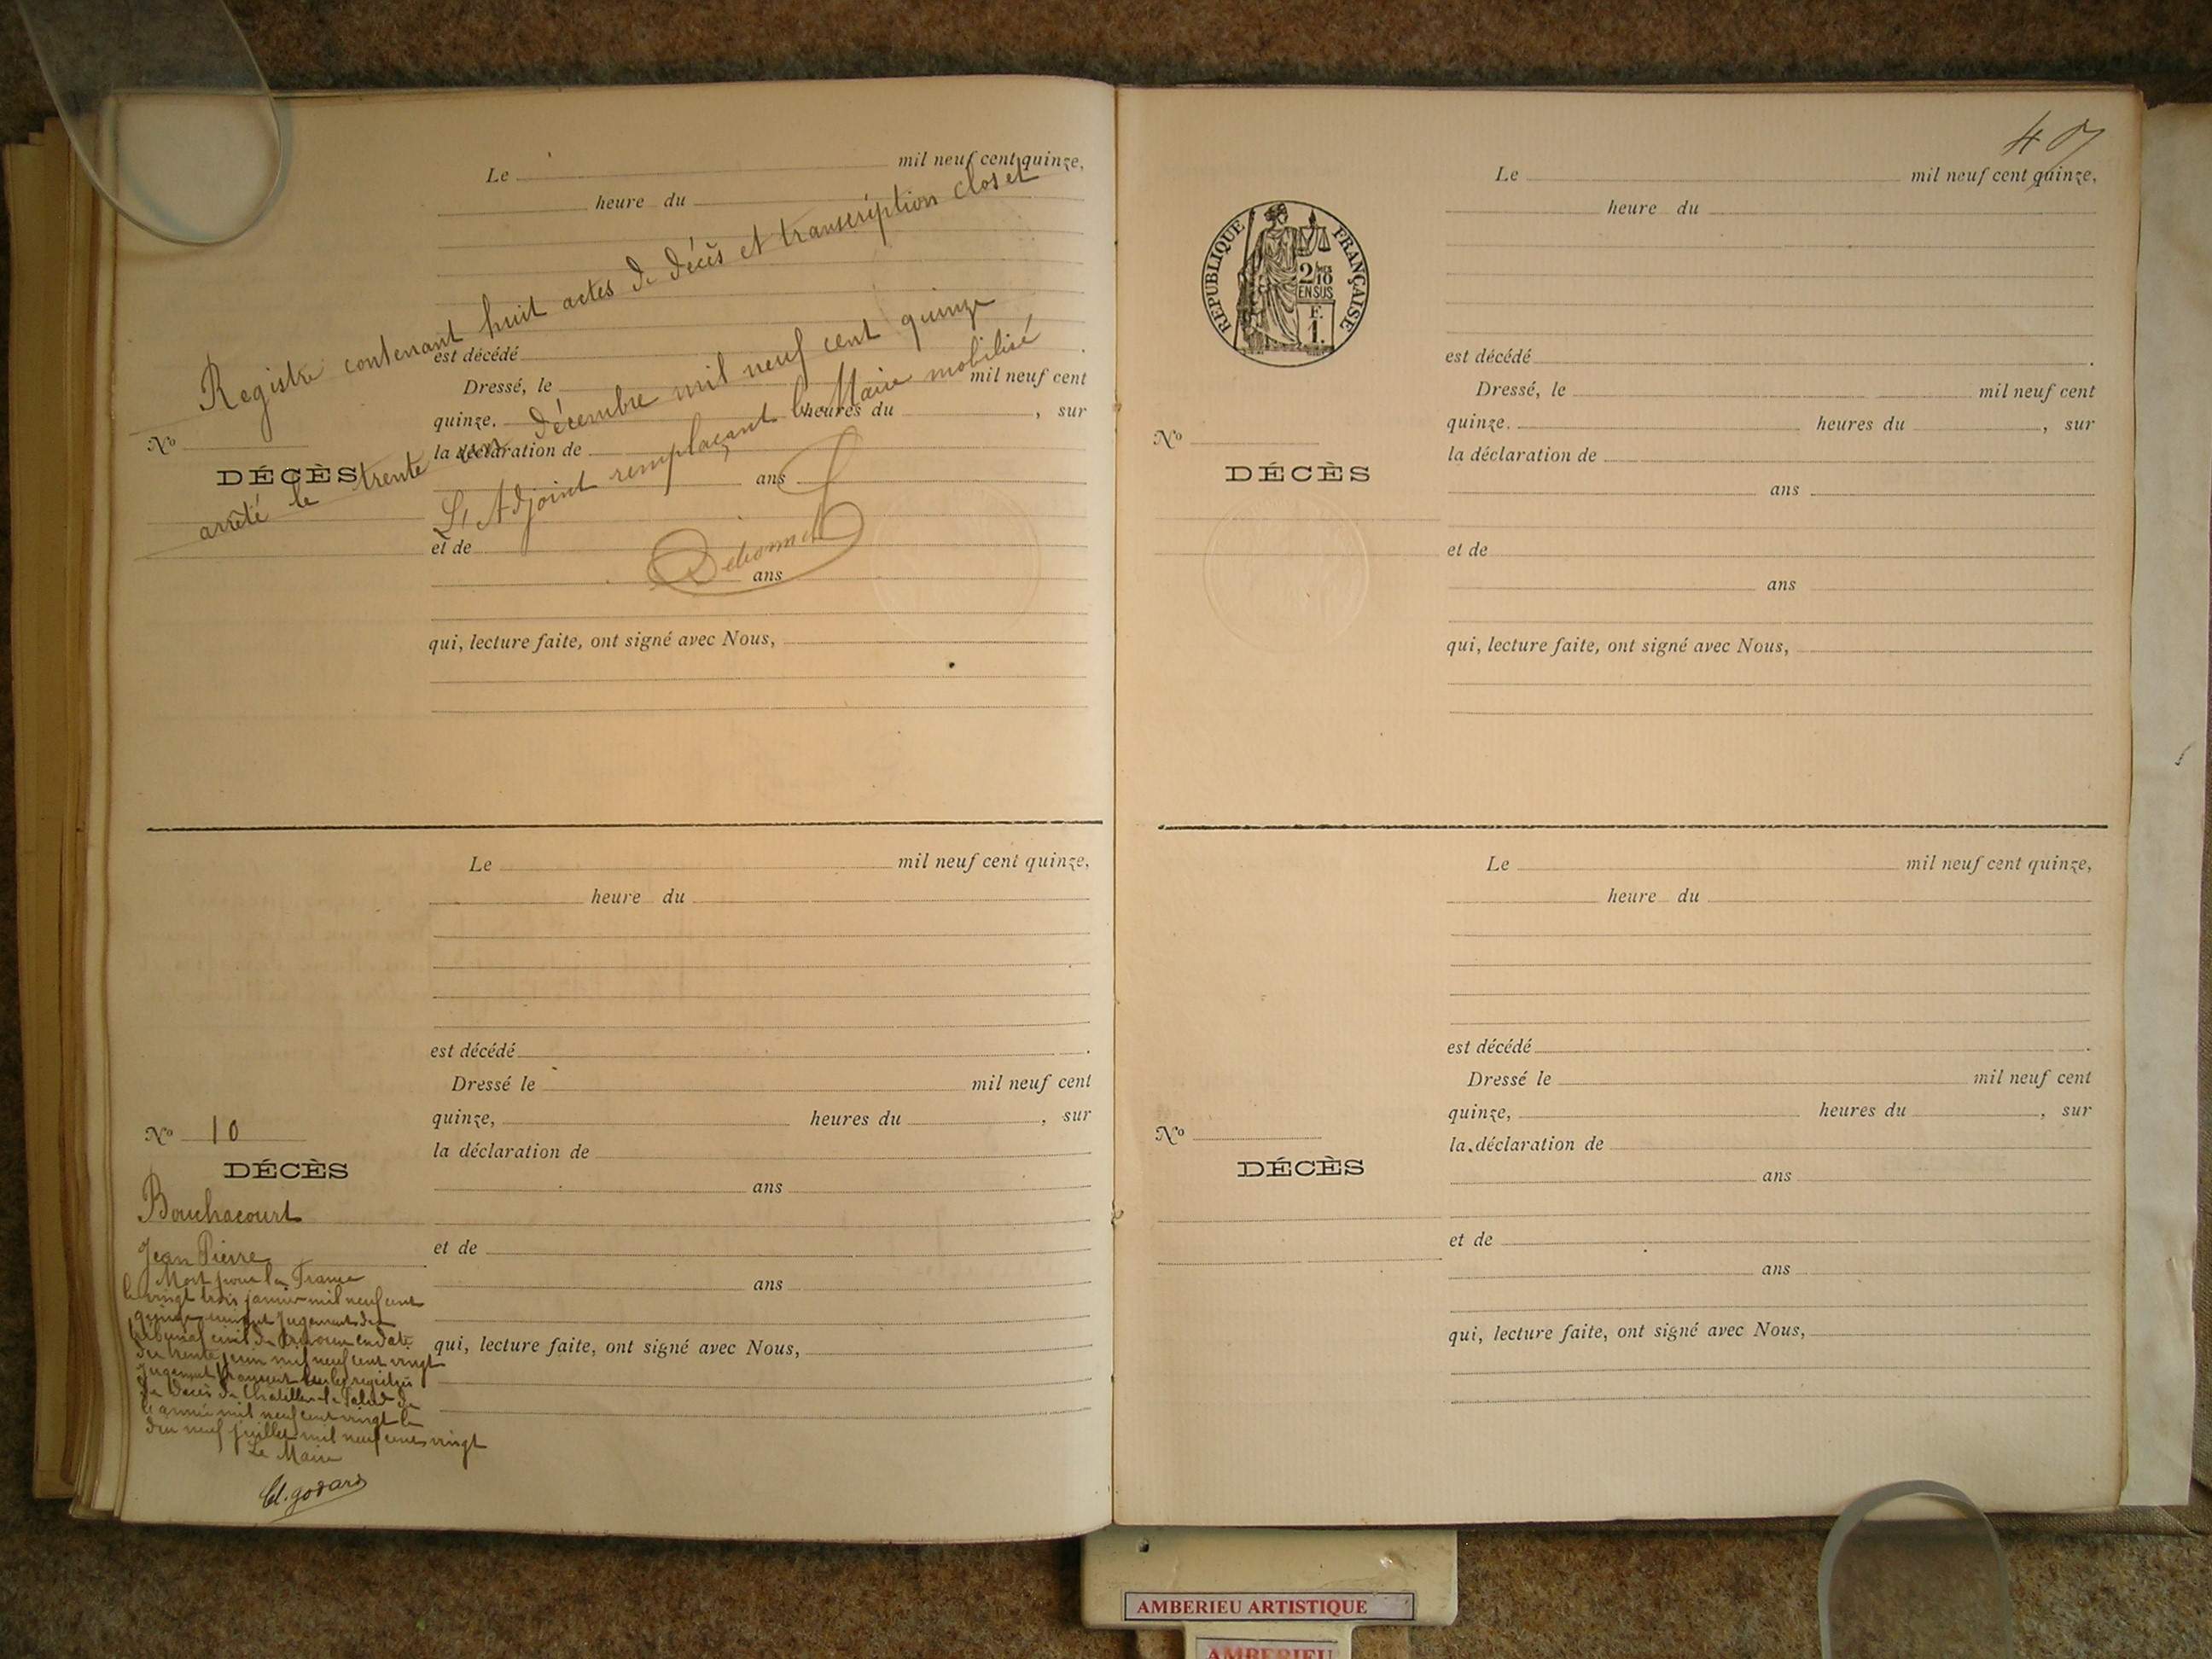 Le mil neuf cent quinze,
heure du
Registre contenant huit actes de décès et transcription clos et
est décédé
Dressé, le mil neuf cent
quinze. heures du , sur
la déclaration de
arrêté le trente un décembre mil neuf cent quinze
No
DÉCÈS
ans
L'Adjoint remplaçant le Maire mobilisé
et de
ans
qui, lecture faite, ont signé avec Nous,
Le mil neuf cent quinze,
heure du
est décédé
Dressé le mil neuf cent
quinze, heures du , sur
No 10
la déclaration de
DÉCÈS
ans
Bouchacourt
Jean Pierre
et de
Mort pour la France
le vingt trois janvier mil neuf cent
quinze suivant jugement du
tribunal civil de Trévoux en date
du trente juin mil neuf cent vingt
jugement transcrit sur les registres
de décès de Châtillon-la-Palud de
l'année mil neuf cent vingt le
dix neuf juillet mil neuf cent vingt
Le Maire
Cl. godard
ans
qui, lecture faite, ont signé avec Nous,
40
Le mil neuf cent quinze,
heure du
REPUBLIQUE FRANÇAISE
2/10
EN SUS
F.
1.
est décédé
Dressé, le mil neuf cent
quinze. heures du , sur
No
la déclaration de
DÉCÈS
ans
et de
ans
qui, lecture faite, ont signé avec Nous,
Le mil neuf cent quinze,
heure du
est décédé
Dressé le mil neuf cent
quinze, heures du , sur
No
la déclaration de
DÉCÈS
ans
et de
ans
qui, lecture faite, ont signé avec Nous,
AMBERIEU ARTISTIQUE
AMBERIEU